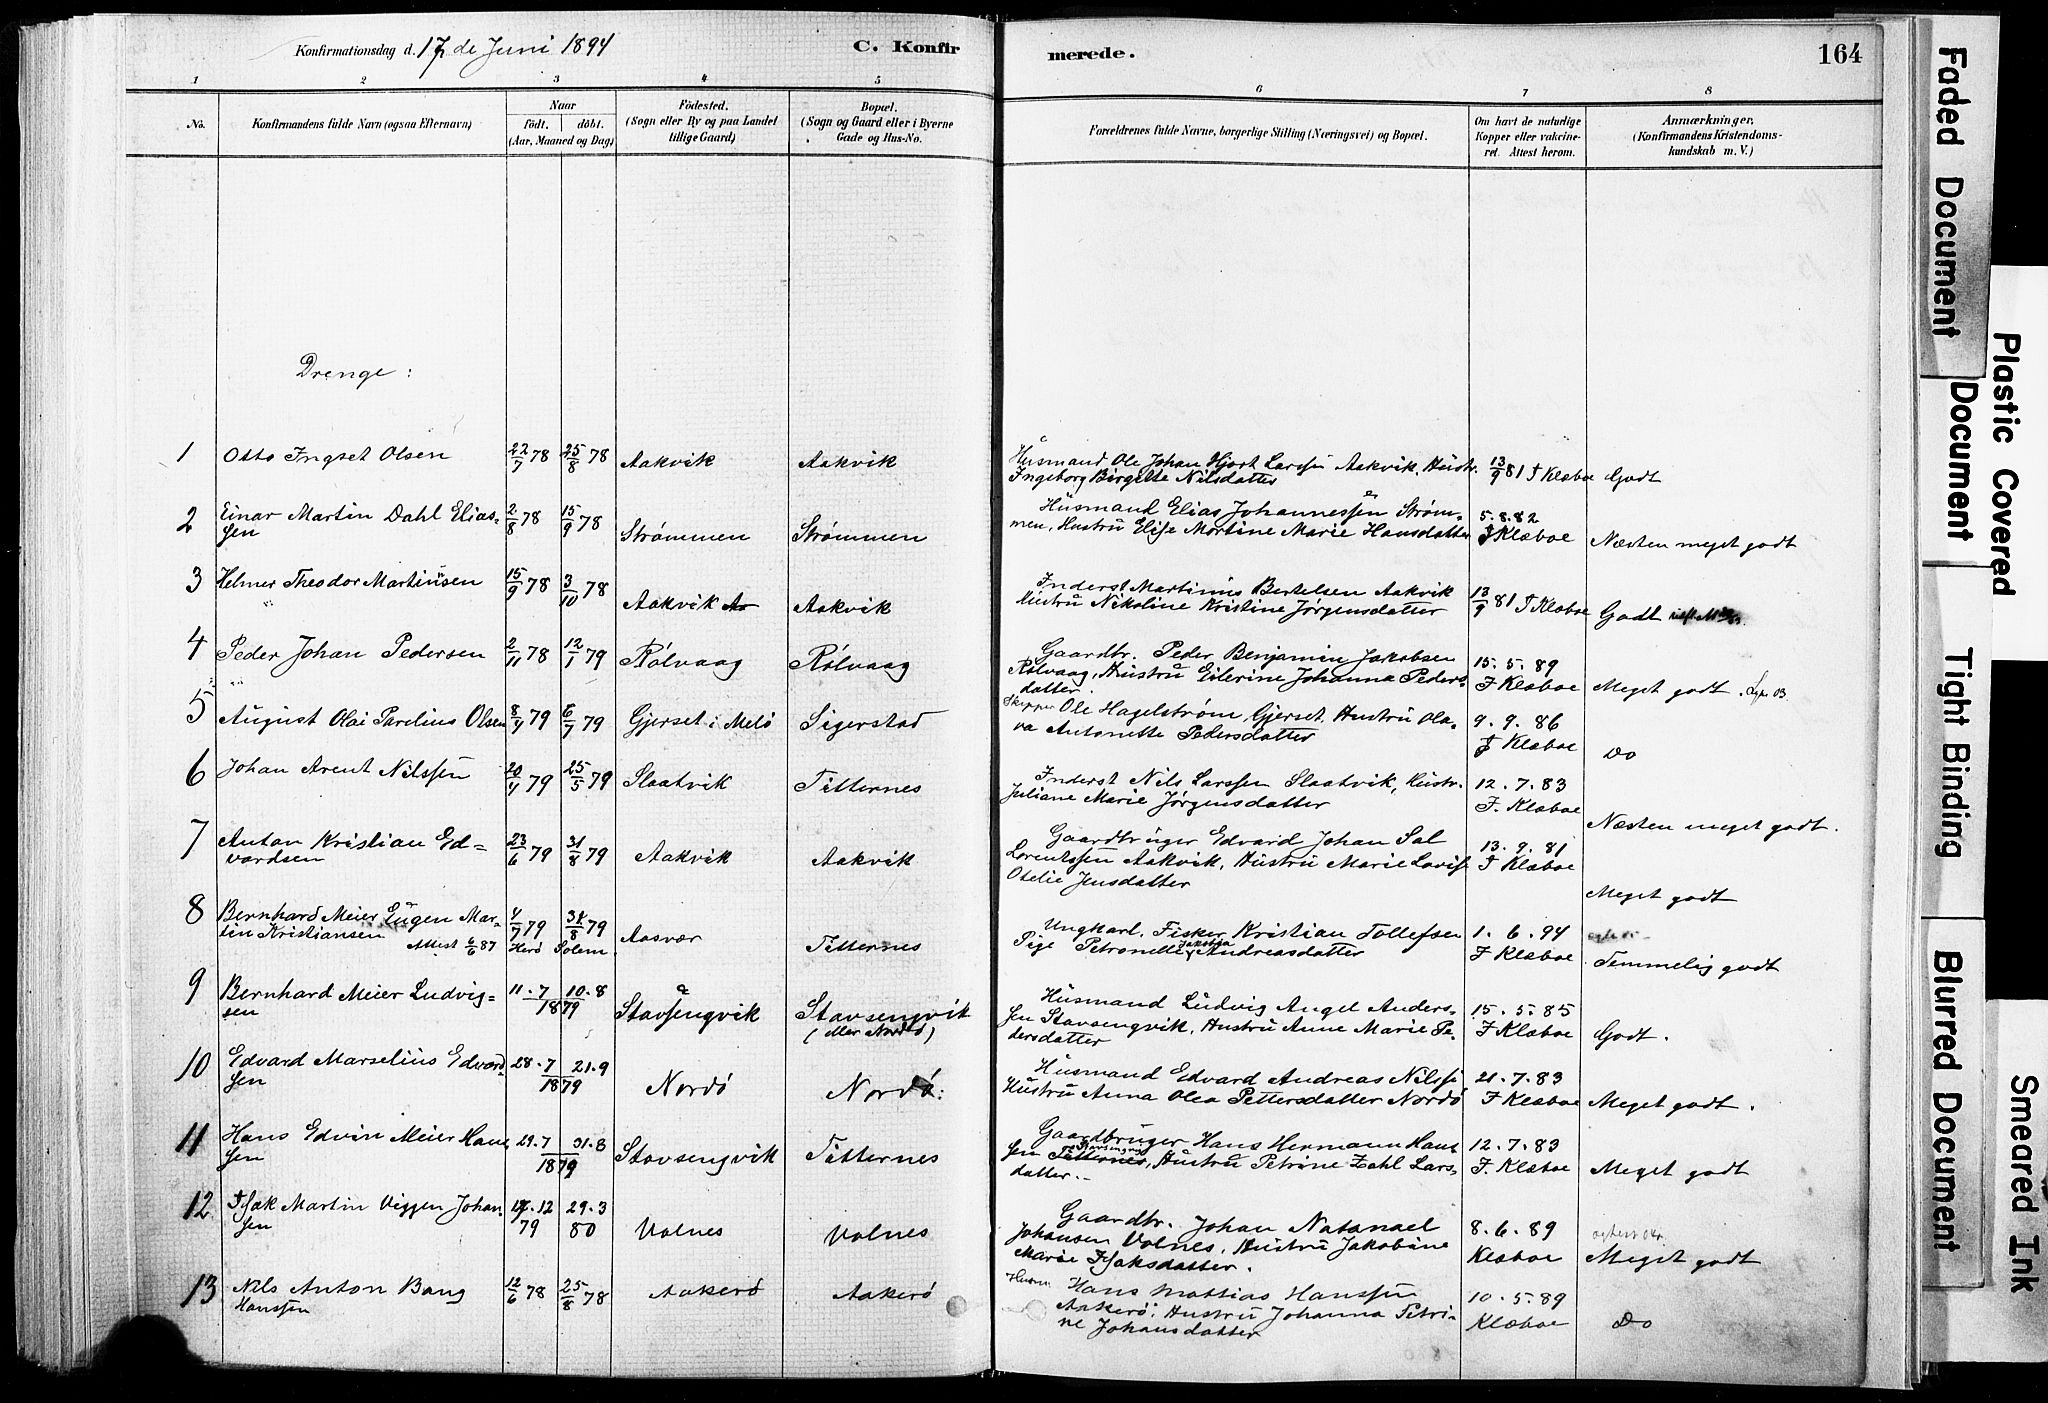 Konfirmationsdag d. 17de Juni 1894
C. Konfirmerede.
164
1 2 3 4 5 6 7 8
No.
Konfirmandens fulde Navn (ogsaa Efternavn)
Naar
födt. döbt.
(Aar, Maaned og Dag)
Födested.
(Sogn eller By og paa Landet
tillige Gaard)
Bopæl.
(Sogn og Gaard eller i Byerne
Gade og Hus-No.
Forældrenes fulde Navne, borgerlige Stilling (Næringsvei) og Bopæl.
Om havt de naturlige
Kopper eller vakcine-
ret. Attest herom.
Anmærkninger.
(Konfirmandens Kristendoms-
kundskab m. V.)
Drenge:
1 Otto Ingset Olsen 22/7 78 25/8 78 Aakvik Aakvik
Husmand Ole Johan Hjort Larssen Aakvik, Hustr.
Ingeborg Birgitte Nilsdatter
13/9 81 F Klæboe Godt
2 Einar Martin Dahl Elias-
sen
2/8 78 15/9 78 Strømmen Strømmen
Husmand Elias Johannessen Strøm-
men, Hustru Elise Martine Marie Hansdatter
5.8.82
F Klæboe Næsten meget godt
3 Helmer Theodor Martinusen 15/9 78 3/10 78 Aakvik Aakvik
Inderst Martinus Bertelsen Aakvik
Hustru Nikoline Kristine Jørgensdatter
13/9 81 F Klæboe Godt
4 Peder Johan Pedersen 2/11 78 12/1 79 Rölvaag Rölvaag
Gaardbr. Peder Benjamin Jakobsen
Rölvaag, Hustru Eilerine Johanna Peders-
datter.
15.5.89
F Klæboe Meget godt.
5 August Olai Parelius Olsen 8/4 79 6/7 79 Gjerset i Melö Sigerstad
Skipper Ole Hagelström, Gjerset, Hustru Ola-
va Antonette Pedersdatter
9.9.86
F Klæboe Do
6 Johan Arent Nilssen 20/4 79 25/5 79 Slaatvik Titternes
Inderst Nils Larssen Slaatvik, Hustr.
Juliane Marie Jörgensdatter
12.7.83
F. Klæboe
Næsten meget godt.
7 Anton Kristian Ed=
vardsen
23/6 79 31/8 79 Aakvik Aakvik
Gaardbruger Edvard Johan Sal
Lorentssen Aakvik, Hustru Marie Lovise
Otelie Jensdatter
13.9.81
F Klæboe
Meget godt
8 Bernhard Meier Eugen Mar-
tin Kristiansen
Attest 6/6 87
4/7 79 31/8 79
Herö Solem
Aasvær Titternes
Ungkarl. Fisker Kristian Tollefsen
Pige Petronelle Jakobea Andreasdatter
1.6.94
F Klæboe
Temmelig godt
9 Bernhard Meier Ludvig-
sen
11.7 10.8
1879
Stavsengvik Stavsengvik
(eller Nordö)
Husmand Ludvig Angel Anders-
sen Stavsengvik, Hustru Anne Marie Pe-
dersdatter
15.5.85
F Klæboe Godt.
10 Edvard Marselius Edvard-
sen
28.7 21.9
1879
Nordö Nordö.
Husmand Edvard Andreas Nilssen
Hustru Anna Olea Pettersdatter Nordö
21.7.83
F Klæboe Meget godt.
11 Hans Edvin Meier Han-
sen
29.7 31.8
1879
Stavsengvik Titternes
Gaardbruger Hans Hermann Han-
sen Titternes, Hustru Petrine Zahl Lars-
datter.
12.7.83
F. Klæboe Meget godt
12 Isak Martin Viggen Johan-
sen
12 29.3
79 80
Volnes Volnes
Gaardbr. Johan Natanael
Johansen Volnes, Hustru Jakobine
Marie Isaksdatter.
8.6.89
Klæboe Meget godt
13 Nils Anton Bang
Hanssen
12/6 78 25/8 78 Aakerö Aakerö
Husm. Hans Mattias Hanssen
Aakerö. Hustru Johanna Petri-
ne Johansdatter
10.5.89
Klæboe Do
Faded Document
Plastic Covered Document
Tight Binding
Blurred Document
Smeared Ink